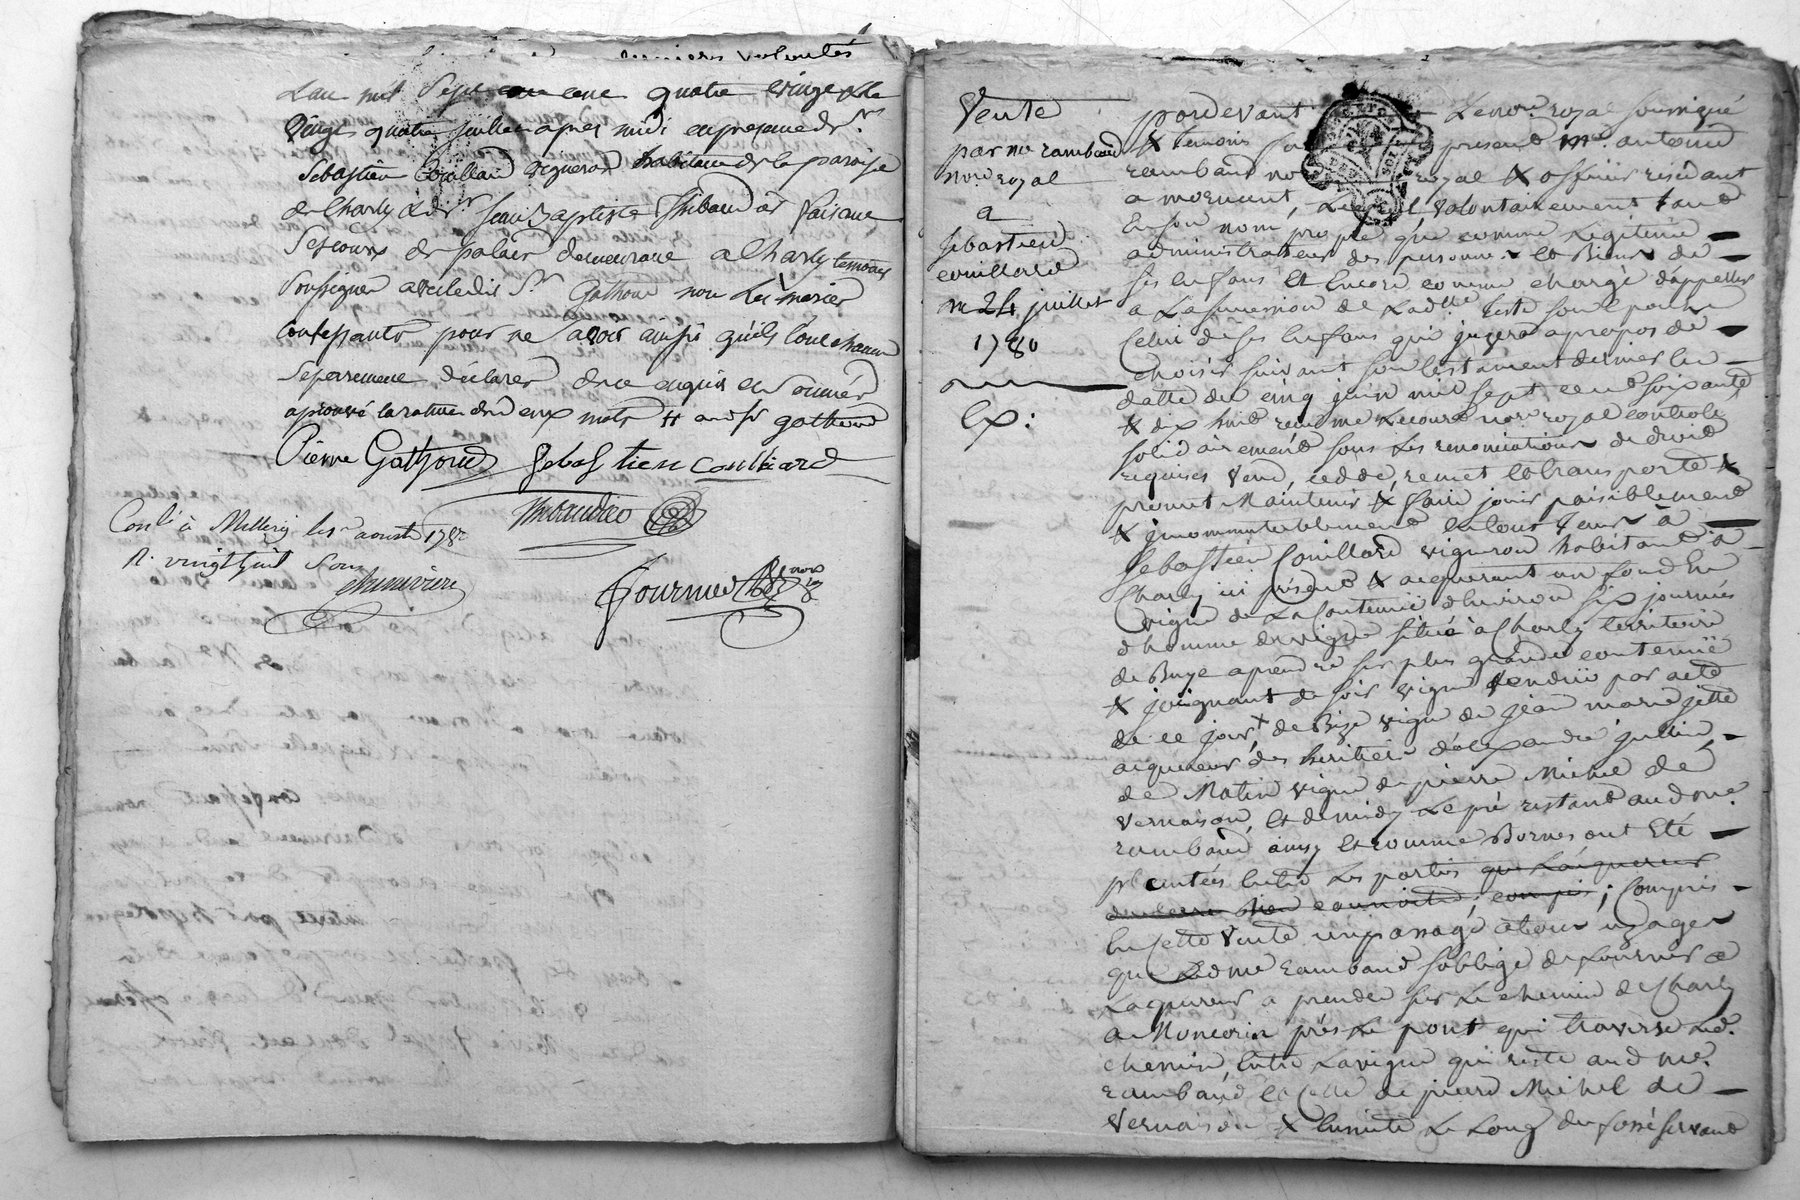 derniers volontés
L'an mil sept cent quatre vingt & le
vingt quatre juillet après midi en presence de Srs
Sebastien Couillard vigneron habitant de la paroisse
de Charly & de Sr Jean Baptiste Thibaudier faisant
de palais demeurant a Charly temoins
soussignes avec ledit Sr Gathoud non les mariés
confessants pour ne savoir ainsi qu'ils l'ont chacun
separement déclaré de ce enquis et sommés
aprouvé la rature de deux mots & ansi gathoud
Pierre Gathoud Sebastien Couillard
Thibaudier
Conlé à Millery le aoust 178
R. vingt huit sous
Fournier
Vente
par me rambaud
nore royal
a
sebastien
couillard
du 24 juillet
1780
Ex:
pardevant Le nore royal soussigné
& temoins present me antoine
rambaud no royal & officier résidant
a mornant, Lequel volontairement tant
En son nom propre que comme Legitime
administrateur des personnes et Biens de
ses enfans Et Encore comme chargé d'appeller
a La succession de Ladlle
Celui de ses Enfans qui jugera apropos de
choisir suivant son testament dernier en
datte du cinq juin mil sept cent soixante
& dix huit reçu me Lecourt nore royal controlé
solidairement sous Les renonciations de droit
requises Vend, cedde, remet et transporte &
promet Maintenir & faire jouir paisiblement
& jncommutablement en tous tems à
Sebastien Couillard vigneron habitant a
Charly ici présent & acquerant un fond En
vigne de La Contenüe d'Environ six journées
d'homme de vigne située à Charly territoire
de Buye a prendre sur plus grande contenüe
& joignant de soir vigne vendüe par acte
de ce jour, de Bize vigne de jean marie jette
acquereur des heritiers d'alexandre jullin,
de Matin vigne de pierre Michel de
vernaison, et de midy Le pré restant aud me
rambaud ainsy et comme Bornes ont Eté
plantées Entre Les parties que L'acquereur
; Compris
En cette Vente un passage à tous usages
que Led me rambaud s'obblige de fournir a
L'acquereur a prendre sur Le chemin de Charly
a Moncorin près Le pont qui traverse Led.
chemin, Entre La vigne qui reste aud me.
rambaud et Celle de pierre Michel de
Vernaison & Ensuite Le Long du fossé servant